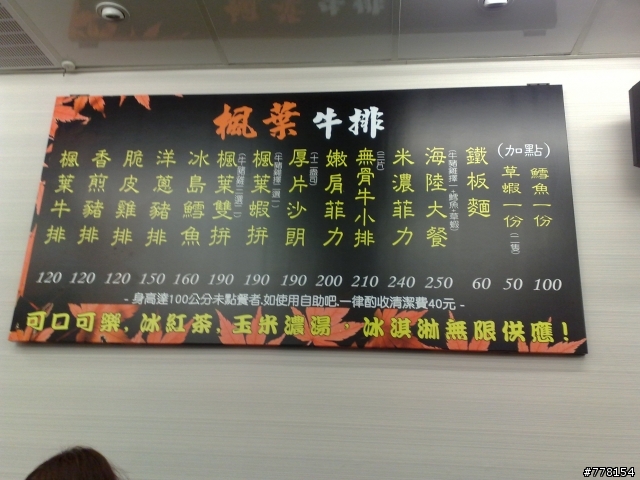 楓葉牛排
楓葉牛排 120
香煎豬排 120
脆皮雞排 120
洋蔥豬排 150
冰島鱈魚 160
楓葉雙拼 (牛豬雞三選二) 190
楓葉蝦拼 (牛豬雞擇一) 190
厚片沙朗 (十二盎司) 190
嫩肩菲力 200
無骨牛小排 (三片) 210
米濃菲力 240
海陸大餐 (牛豬雞擇一+鱈魚+草蝦) 250
鐵板麵 60
(加點)
草蝦一份 (二隻) 50
鱈魚一份 100
- 身高達100公分未點餐者,如使用自助吧,一律酌收清潔費40元 -
可口可樂, 冰紅茶, 玉米濃湯, 冰淇淋無限供應!
#778154